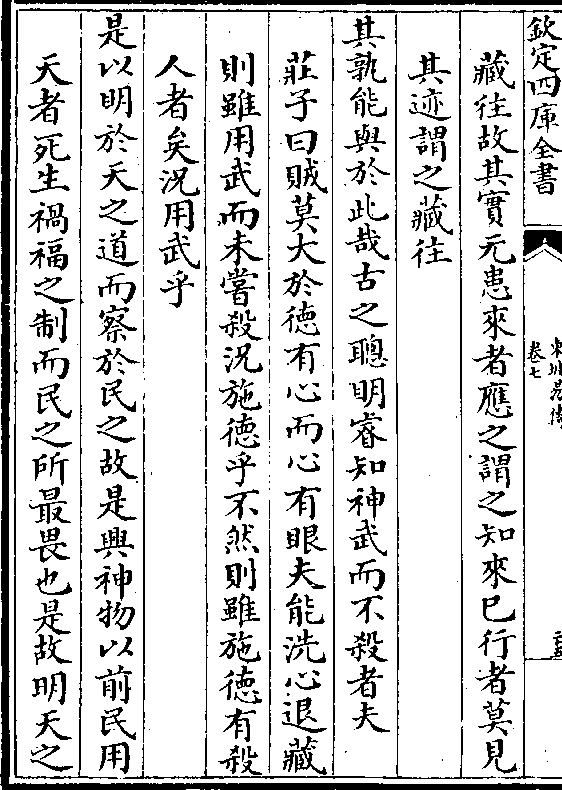 欽定四庫全書
東坡易傳
卷七
藏往故其實元患來者應之謂之知來已行者莫見
其迹謂之藏往
其孰能與於此哉古之聰明睿知神武而不殺者夫
莊子曰賊莫大於徳有心而心有眼夫能洗心退藏
則雖用武而未嘗殺況施徳乎不然則雖施徳有殺
人者矣況用武乎
是以明於天之道而察於民之故是興神物以前民用
天者死生禍福之制而民之所最畏也是故明天之